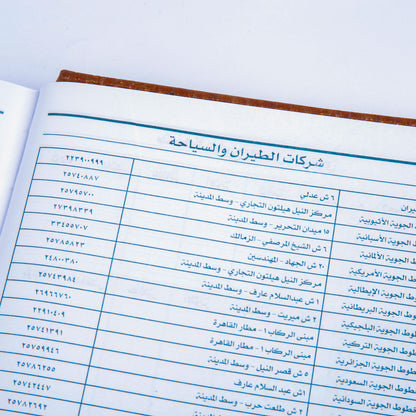 شركات الطيران والسياحة
يران ٦ ش عدلى ٢٢٣٩٠٠٩٩٩
طوط الجوية الأثيوبية مركز النيل هيلتون التجارى - وسط المدينة ٢٥٧٤٠٨٨٧
طوط الجوية الأسبانية ١٥ ميدان التحرير - وسط المدينة ٢٥٧٩٥٧٠٠
طوط الجوية الألمانية ٦ ش الشيخ المرصفى - الزمالك ٢٧٣٩٨٣٣٩
طوط الجوية الأمريكية ٢٠ ش الجهاد - المهندسين ٣٣٤٥٥٧٠٧
طوط الجوية الإيطالية مركز النيل هيلتون التجارى - وسط المدينة ٢٥٧٨٥٨٢٣
طوط الجوية البريطانية ١ش عبدالسلام عارف - وسط المدينة ٢٤٨٠٠٣٨٠
طوط الجوية البلجيكية ٢ ش ميريت - وسط المدينة ٢٥٧٤٣٩٨٤
طوط الجوية التركية مبنى الركاب ١ - مطار القاهرة ٢٦٩٦٦٧٦٠
طوط الجوية الجزائرية مبنى الركاب ١ - مطار القاهرة ٢٢٩١٠٤٠٩
طوط الجوية السعودية ٥ ش قصر النيل - وسط المدينة ٢٥٧٤١٣٩١
طوط الجوية السودانية ١ش عبد السلام عارف ٢٥٧٥٩٩٤٦
٢ ش طلعت حرب - وسط المدينة ٢٥٧٨٦٢٥٥
٢٥٧٤٢٤٤٧
٢٥٧٨٢٨٩٢